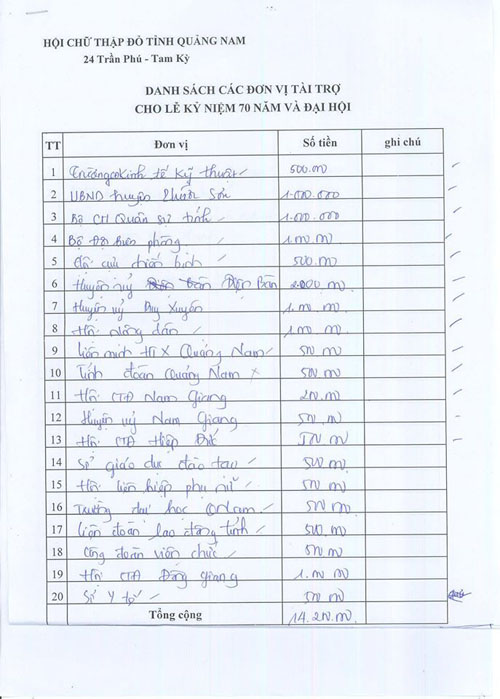 HỘI CHỮ THẬP ĐỎ TỈNH QUẢNG NAM
24 Trần Phú - Tam Kỳ
DANH SÁCH CÁC ĐƠN VỊ TÀI TRỢ
CHO LỄ KỶ NIỆM 70 NĂM VÀ ĐẠI HỘI
TT Đơn vị Số tiền ghi chú
1 kinh tế kỹ thuật 500.000
2 UBND huyện Phước Sơn 1.000.000
3 Bộ CH Quân sự tỉnh 1.000.000
4 Bộ Đội biên phòng 1.000.000
5 Hội cựu chiến binh 500.000
6 Huyện uỷ Điện Bàn 2.000.000
7 Huyện uỷ Duy Xuyên 1.000.000
8 Hội Nông dân 1.000.000
9 Liên minh HTX Quảng Nam 500.000
10 Tỉnh đoàn Quảng Nam 500.000
11 Hội CTĐ Nam Giang 200.000
12 Huyện uỷ Nam Giang 500.000
13 Hội CTĐ Hiệp Đức 500.000
14 Sở giáo dục đào tạo 500.000
15 Hội liên hiệp phụ nữ 500.000
16 Trường đại học QNam 500.000
17 Liên đoàn lao động tỉnh 500.000
18 Công đoàn viên chức 500.000
19 Hội CTĐ Đông Giang 1.000.000
20 Sở Y tế 500.000
Tổng cộng 14.200.000